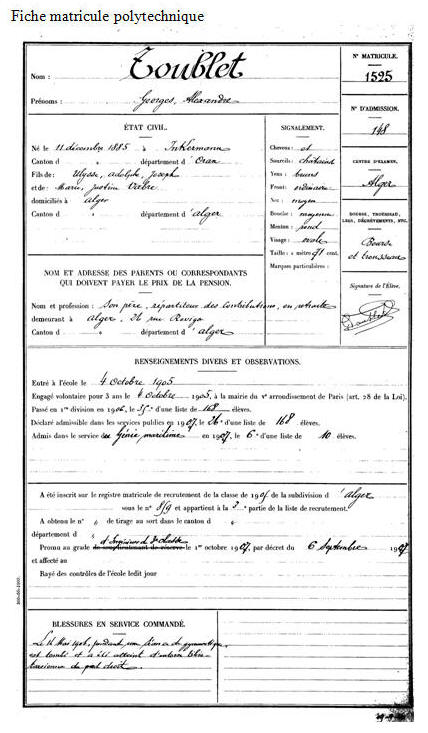 Fiche matricule polytechnique
Nom : Toublet
Prénoms : Georges, Alexandre
N° MATRICULE.
1525
N° D'ADMISSION.
148
CENTRE D'EXAMEN.
Alger
BOURSE, TROUSSEAU, LEGS, DÉGRÈVEMENTS, ETC.
Bourse
et trousseau
Signature de l'Élève.
Toublet
ÉTAT CIVIL.
Né le 11 décembre 1885 à Inkermann
Canton d " département d'Oran
Fils de: Ulysse, Adolphe, Joseph
et de Marie, Justine
domiciliés à alger
Canton d " département d'alger
SIGNALEMENT.
Cheveux: et
Sourcils: châtains
Yeux: bruns
Front: ordinaire
Nez: moyen
Bouche: moyenne
Menton: rond
Visage: ovale
Taille: 1 mètre 71 cent.
Marques particulières:
NOM ET ADRESSE DES PARENTS OU CORRESPONDANTS
QUI DOIVENT PAYER LE PRIX DE LA PENSION.
Nom et profession: Son père, répartiteur des contributions, en retraite
demeurant à alger, 26 rue Rovigo
Canton d " département d'alger
RENSEIGNEMENTS DIVERS ET OBSERVATIONS.
Entré à l'école le 4 octobre 1905
Engagé volontaire pour 3 ans le 4 octobre 1905, à la mairie du V° arrondissement de Paris (art. 28 de la Loi).
Passé en 1re division en 1906, le 35e d'une liste de 168 élèves.
Déclaré admissible dans les services publics en 1907, le 36e d'une liste de 168 élèves.
Admis dans le service du Génie maritime en 1907, le 6e d'une liste de 10 élèves.
A été inscrit sur le registre matricule de recrutement de la classe de 1905 de la subdivision d'alger
sous le n° 819 et appartient à la 3e partie de la liste de recrutement.
A obtenu le n° " de tirage au sort dans le canton d "
département d "
d'Ingénieur de 3e classe
Promu au grade de sous-lieutenant de réserve le 1er octobre 1907, par décret du 6 Septembre 1907
et affecté au
Rayé des contrôles de l'école ledit jour
BLESSURES EN SERVICE COMMANDÉ.
Le 16 Mai 1906, pendant une séance de gymnastique,
est tombé et a été atteint d'entorse tibio
tarsienne du pied droit.